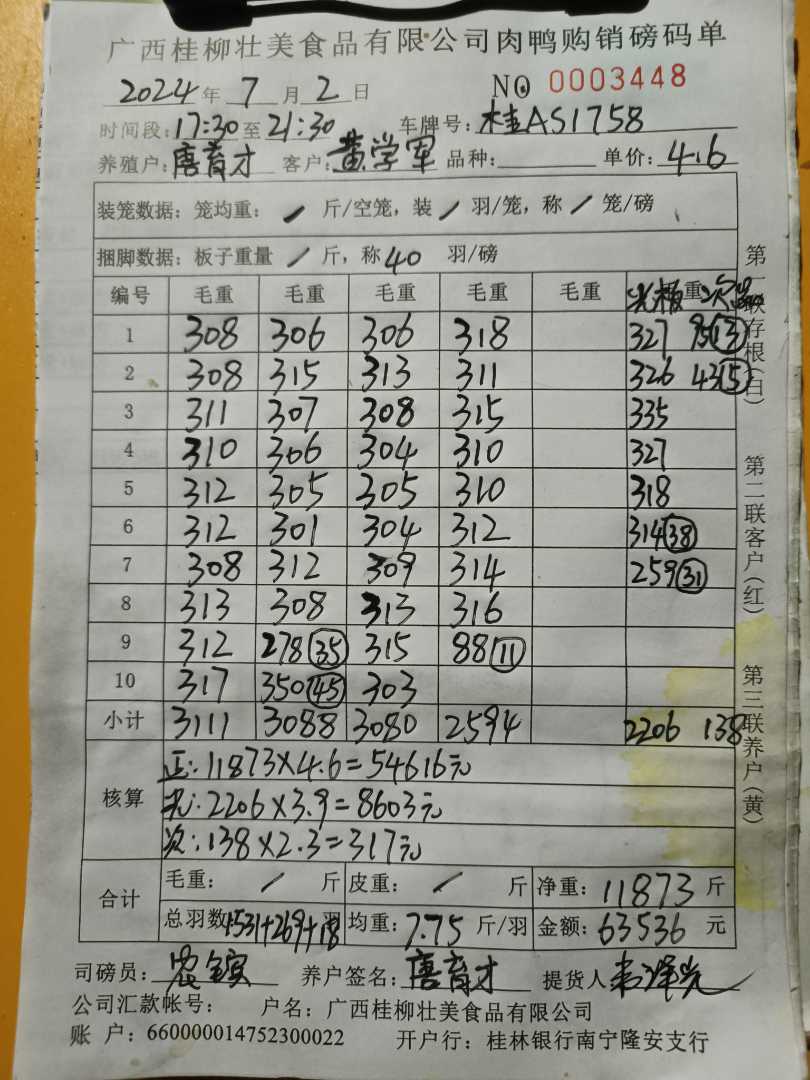 广西桂柳壮美食品有限公司肉鸭购销磅码单
2024年 7月 2日 NO 0003448
时间段:17:30至21:30 车牌号:桂AS1758
养殖户:唐育才 客户:黄学军 品种: 单价:4.6
装笼数据:笼均重: / 斤/空笼,装 / 羽/笼,称 / 笼/磅
捆脚数据:板子重量 / 斤,称40 羽/磅
编号 毛重 毛重 毛重 毛重 毛重 光板 次
1 308 306 306 318 327 95(13)
2 308 315 313 311 326 43(15)
3 311 307 308 315 335
4 310 306 304 310 327
5 312 305 305 310 318
6 312 301 304 312 314(38)
7 308 312 309 314 259(31)
8 313 308 313 316
9 312 278(35) 315 88(11)
10 317 350(45) 303
小计 3111 3088 3080 2594 2206 138
核算
正:11873×4.6=54616元
光:2206×3.9=8603元
次:138×2.3=317元
合计
毛重: / 斤 皮重: / 斤 净重:11873斤
总羽数1531+269+18羽 均重:7.75斤/羽 金额:63536元
司磅员: 养户签名:唐育才 提货人
公司汇款帐号: 户名:广西桂柳壮美食品有限公司
账 户:660000014752300022 开户行:桂林银行南宁隆安支行
第一联存根(白)
第二联客户(红)
第三联养户(黄)